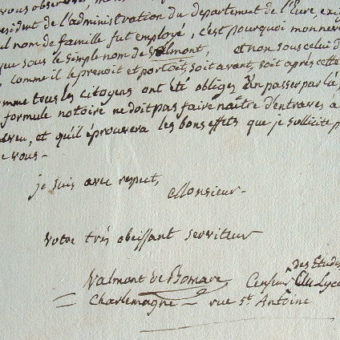 vous observer,
sident de l'administration du departement de l'Eure, exig
el nom de famille fut employé, c'est pourquoi mon neveu
que sous le simple nom de valmont, et non sous celui d
comme il le prenoit et portoit, soit avant, soit après cette
omme tous les citoyens ont été obligés d'en passer par là,
formule notoire ne doit pas faire naître d'entraves a
veu, et qu'il éprouvera les bons effets que je sollicite p
e vous -
je suis avec respect,
Monsieur -
votre très obeissant serviteur
Valmont de Bomare Censeur des Etudes du Lyc
Charlemagne - rue St. Antoine